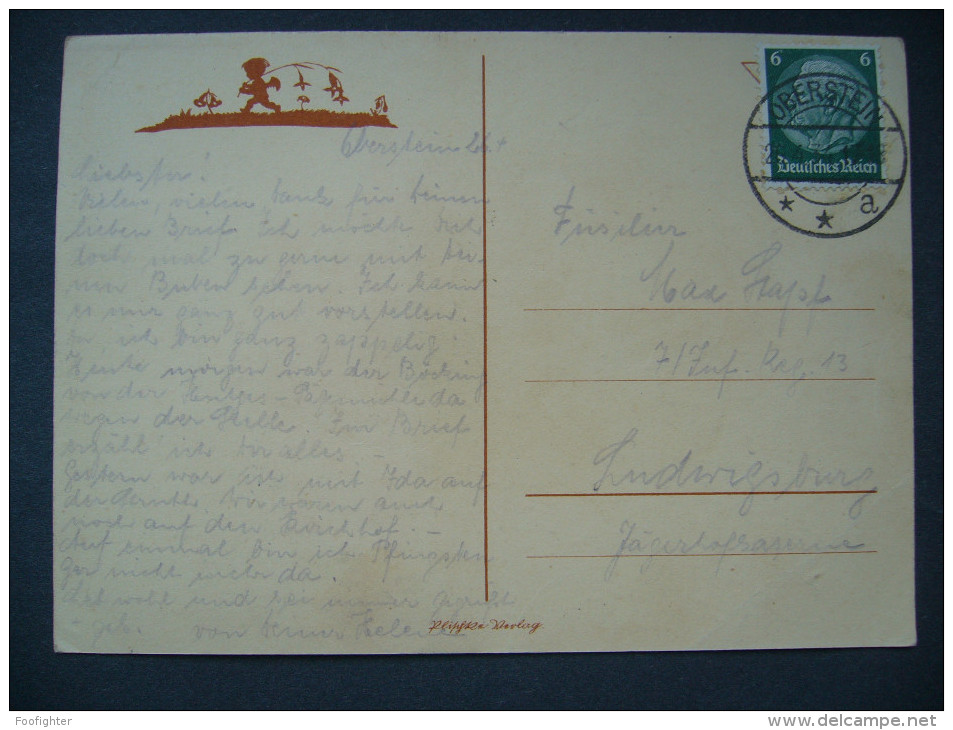 Oberstein 26.4
Liebster!
Vielen, vielen Dank für Deinen
lieben Brief. Ich möchte Dich
doch mal zu gerne mit Dei-
nen Buben sehen. Ich kann
es mir ganz gut vorstellen.
ich bin ganz zappelig.
Heute morgen war der Böcking
von der
wegen der Stelle. Im Brief
erzähl ich Dir alles. –
Gestern war ich mit Ida auf
der wir waren auch
noch auf dem Kirchhof. –
Auf einmal bin ich Pfingsten
gar nicht mehr da.
Leb wohl und sei immer
von Deiner Helene
Plischke Verlag
6 6
Deutsches Reich
OBERSTEIN
a
Füsilier
Max Stapf
7/Inf. Reg. 13
Ludwigsburg
Jägerhofkaserne
Foofighter
http://www.delcampe.net